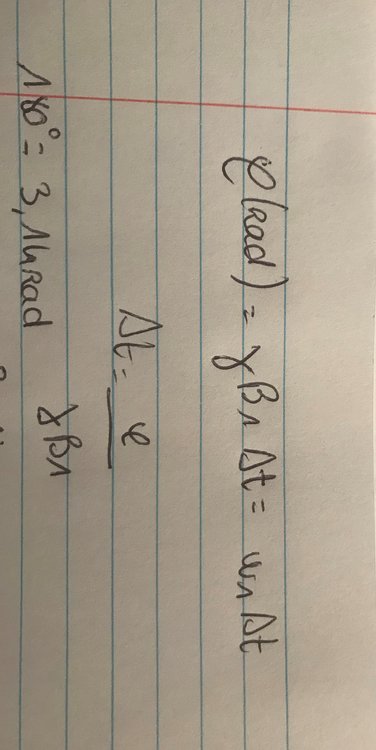 φ(rad) = γ B₁ Δt = ω₁ Δt
Δt = φ
γ B₁
180° = 3,14 rad